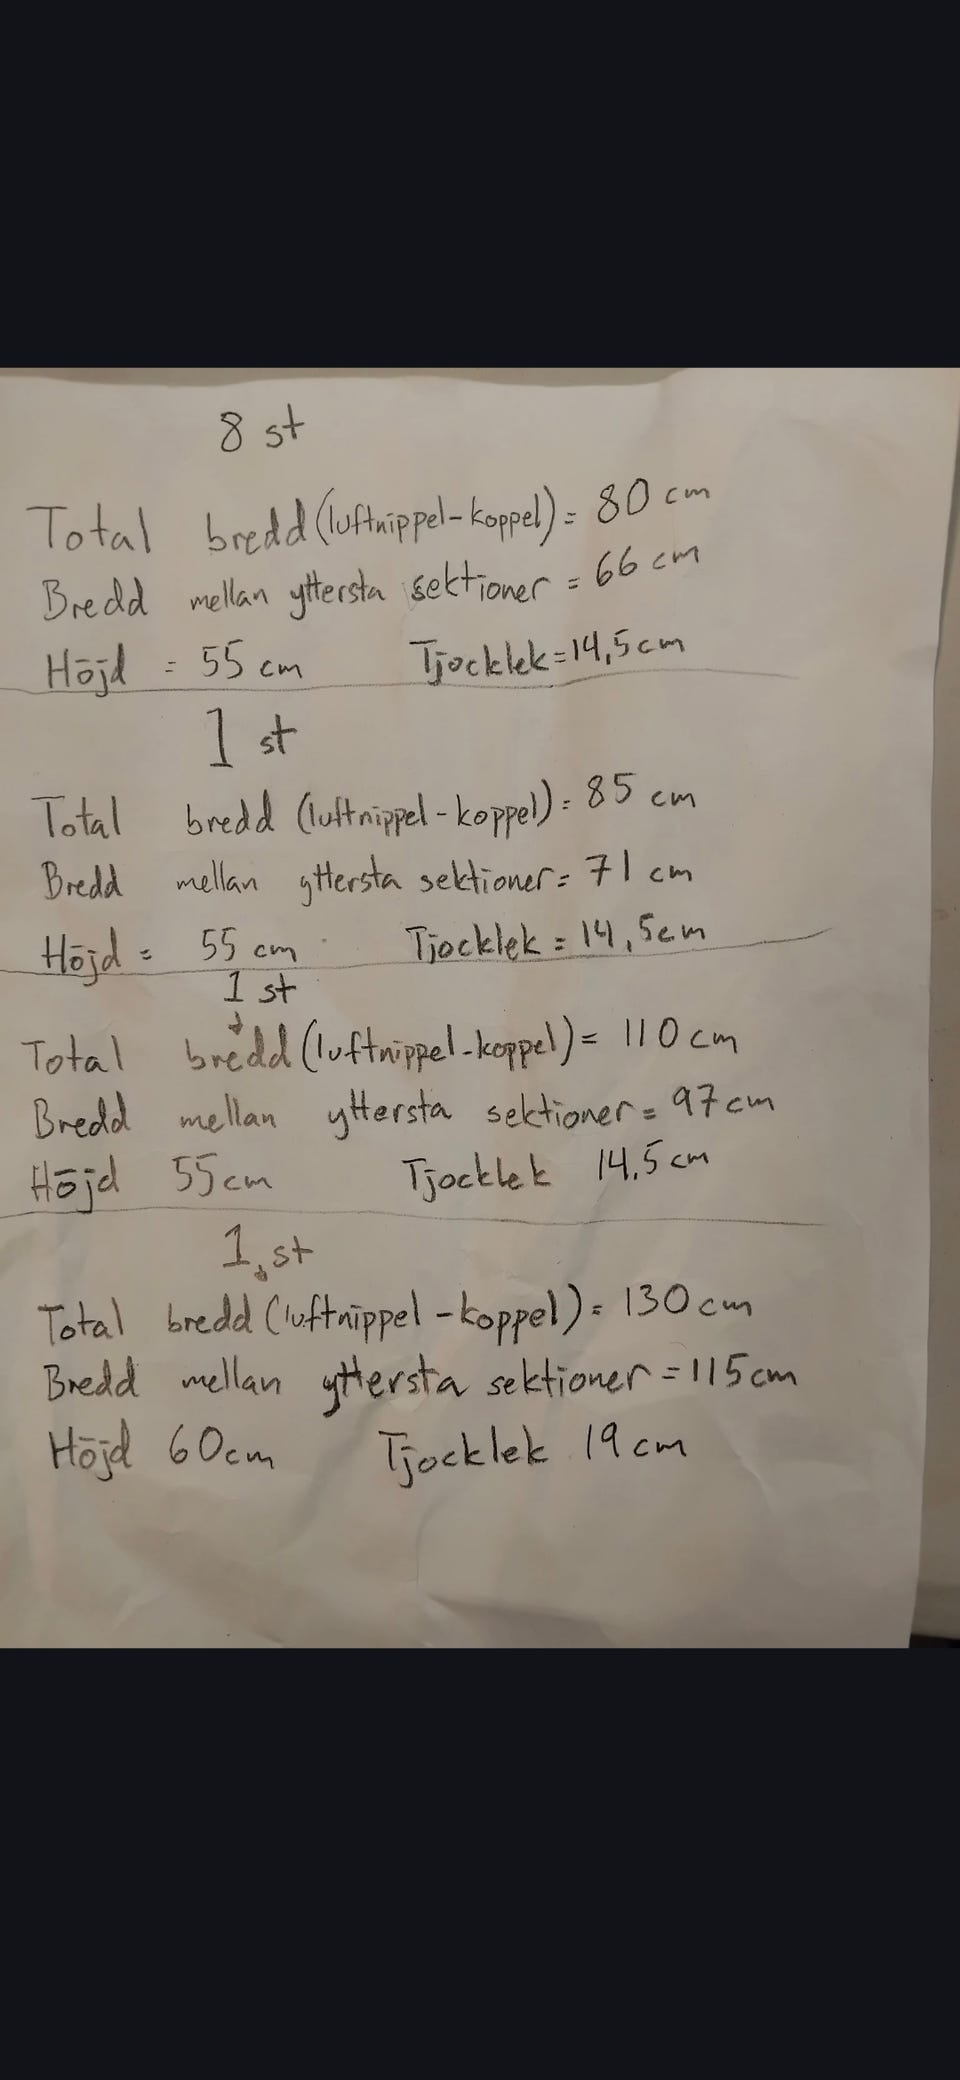 8 st
Total bredd (luftnippel-koppel) = 80 cm
Bredd mellan yttersta sektioner = 66 cm
Höjd = 55 cm Tjocklek = 14,5 cm
1 st
Total bredd (luftnippel-koppel) = 85 cm
Bredd mellan yttersta sektioner = 71 cm
Höjd = 55 cm Tjocklek = 14,5 cm
1 st
Total bredd (luftnippel-koppel) = 110 cm
Bredd mellan yttersta sektioner = 97 cm
Höjd 55 cm Tjocklek 14,5 cm
1 st
Total bredd (luftnippel-koppel) = 130 cm
Bredd mellan yttersta sektioner = 115 cm
Höjd 60 cm Tjocklek 19 cm